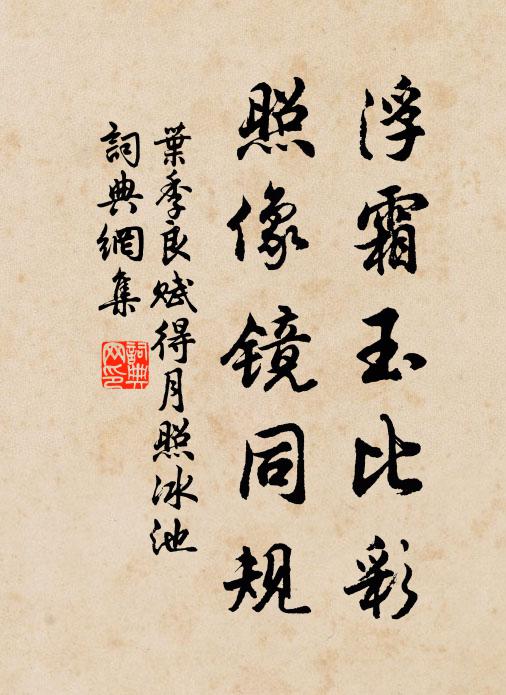 浮霜玉比彩
照像镜同规
葉季良赋得月照冰池
詞典網集
詞典
网印